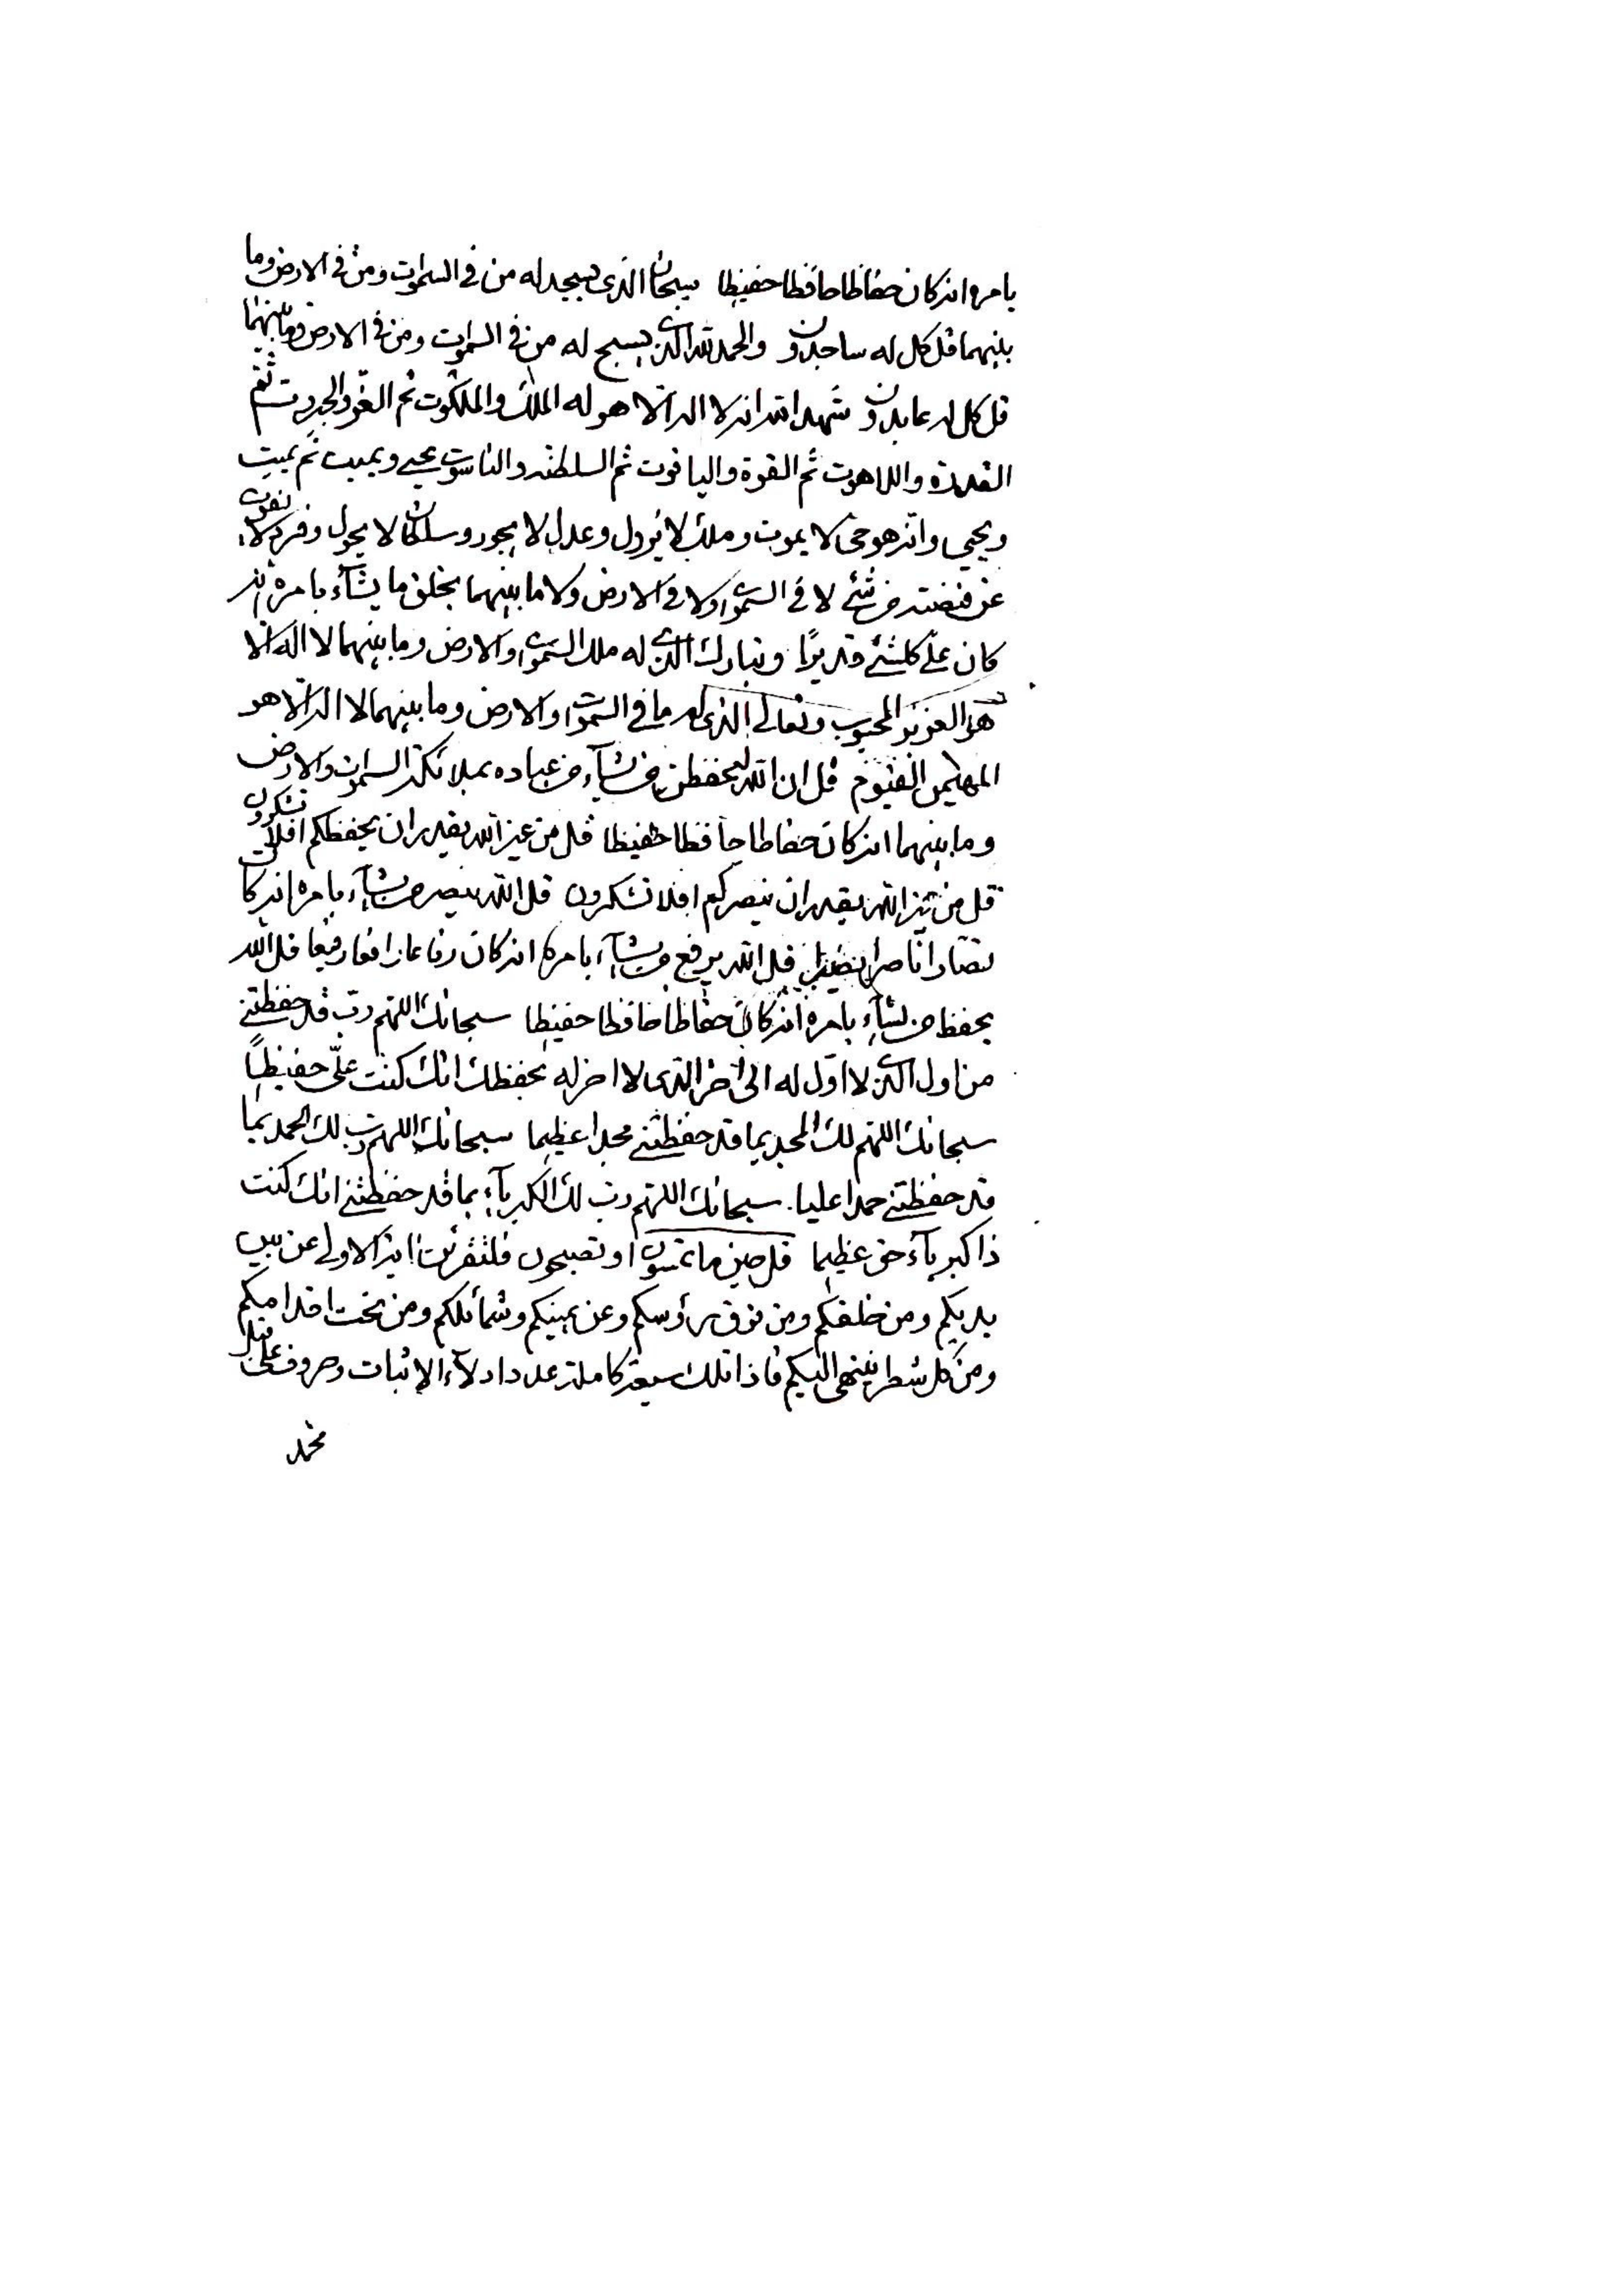 بامره انه كان حفاظا حافظا حفيظا سبحان الذي يسجد له من في السموات ومن في الارض وما
بينهما قل كل له ساجدون والحمد لله الذي يسبح له من في السموات ومن في الارض وما بينهما
قل كل له عابدون شهد الله انه لا اله الا هو له الملك والملكوت ثم العز والجبروت ثم
القدرة واللاهوت ثم القوة والياقوت ثم السلطنه والناسوت يحيي ويميت ثم يميت
ويحيي وانه هو حي لا يموت وملك لا يزول وعدل لا يجور وسلطان لا يحول وفرد لا يفوت
عن قبضته من شئ لا في السموات ولا في الارض ولا ما بينهما يخلق ما يشآء بامره انه
كان على كلشئ قديرًا وتبارك الذي له ملك السموات والارض وما بينهما لا اله الا
هو العزيز المحبوب وتعالى الذي له ما في السموات والارض وما بينهما لا اله الا هو
المهيمن القيوم قل ان الله ليحفظن من يشآء من عباده بملائكة السموات والارض
وما بينهما انه كان حفاظا حافظا حفيظا قل من غير الله يقدر ان يحفظكم افلا تشكرون
قل من غير الله يقدر ان ينصركم افلا تشكرون قل الله ينصر من يشآء بامره انه كان
نصارا ناصرا نصيرا قل الله يرفع من يشآء بامره انه كان رفاعا رافعا رفيعا قل الله
يحفظ من يشآء بامره انه كان حفاظا حافظا حفيظا سبحانك اللهم رب قد حفظتني
من اول الذي لا اول له الى اخر الذي لا اخر له بحفظك انك كنت علّى حفيظًا
سبحانك اللهم لك المجد بما قد حفظتني مجدا عظيما سبحانك اللهم رب لك الحمد بما
قد حفظتني حمدا عليا. سبحانك اللهم رب لك الكبريآء بما قد حفظتني انك كنت
ذا كبريآء حق عظيما قل حين ما تمسون او تصبحون فلتقرئن اية الاولى عن بين
يديكم ومن خلفكم ومن فوق رؤسكم وعن يمينكم وشمائلكم ومن تحت اقدامكم
ومن كل شطر ينتهي اليكم فاذا تلك سبعة كاملة عدد ادلآء الاثبات وحروف علي قبل
محمد